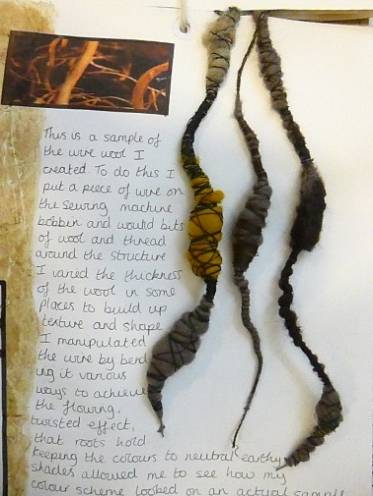 This is a sample of
the wire wool I
created. To do this I
put a piece of wire on
the sewing machine
bobbin and would bits
of wool and thread
around the structure
I varied the thickness
of the wool in some
places to build up
texture and shape
I manipulated
the wire by bend
ing it various
ways to achieve
the flowing,
twisted effect,
that roots hold
Keeping the colours to neutral earthy
shades allowed me to see how my
colour scheme looked on an actual sample